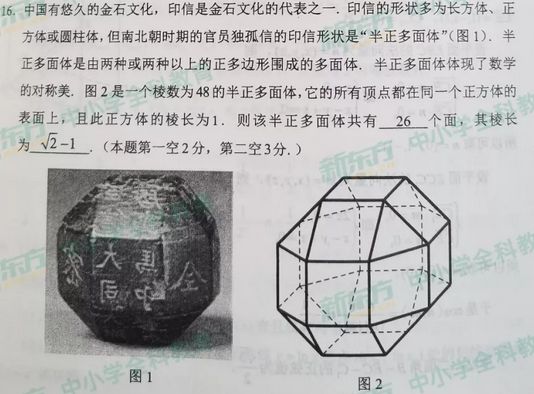 16. 中国有悠久的金石文化，印信是金石文化的代表之一．印信的形状多为长方体、正
方体或圆柱体，但南北朝时期的官员独孤信的印信形状是“半正多面体”(图1)．半
正多面体是由两种或两种以上的正多边形围成的多面体．半正多面体体现了数学
的对称美．图2是一个棱数为48的半正多面体，它的所有顶点都在同一个正方体的
表面上，且此正方体的棱长为1．则该半正多面体共有 26 个面，其棱长
为 √2-1 ．(本题第一空2分，第二空3分．)
图1
图2
新东方
中小学全科教育